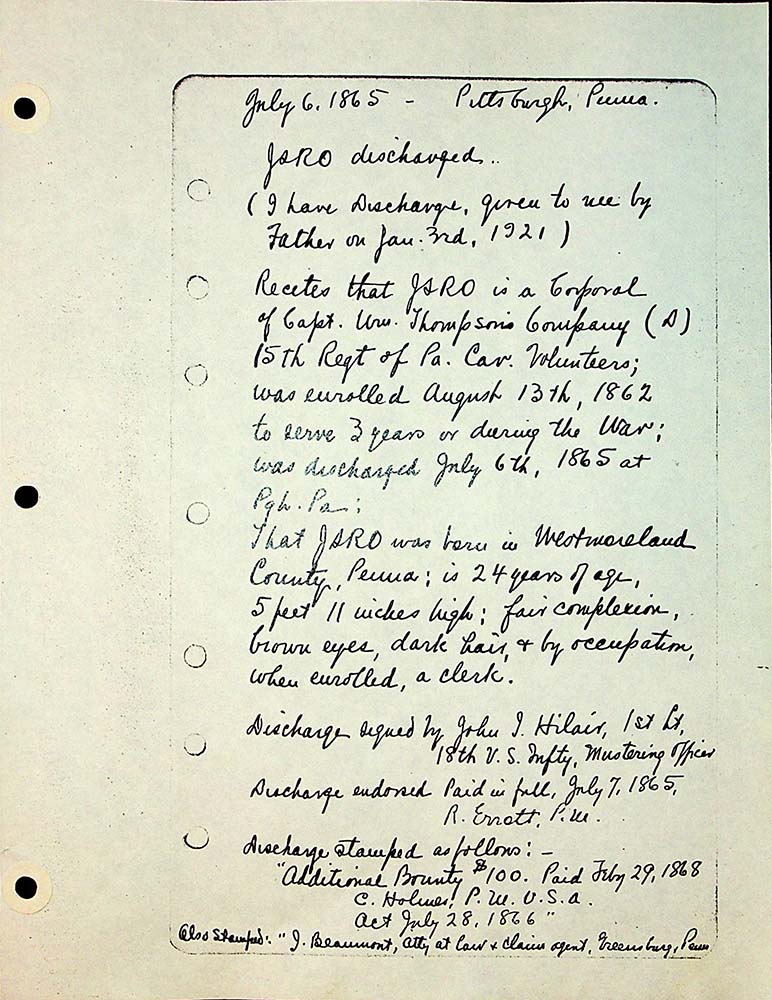 July 6, 1865 - Pittsburgh, Penna.
JSRO discharged..
(I have Discharge, given to me by
Father on Jan. 3rd, 1921)
Recites that JSRO is a Corporal
of Capt. Wm. Thompson's Company (D)
15th Regt of Pa. Cav. Volunteers;
was enrolled August 13th, 1862
to serve 3 years or during the War;
was discharged July 6th, 1865 at
Pgh. Pa;
That JSRO was born in Westmoreland
County, Penna; is 24 years of age,
5 feet 11 inches high; fair complexion,
brown eyes, dark hair, & by occupation,
when enrolled, a clerk.
Discharge signed by John I. Hilair, 1st Lt,
18th U.S. Infty, Mustering Officer
Discharge endorsed Paid in full, July 7, 1865,
R. Errott, P.M.
Discharge stamped as follows: -
"Additional Bounty $100. Paid Feby 29, 1868
C. Holmes, P.M. U.S.A.
Act July 28, 1866"
Also Stamped: "J. Beaumont, Atty at law & claim agent, Greensburg, Penn